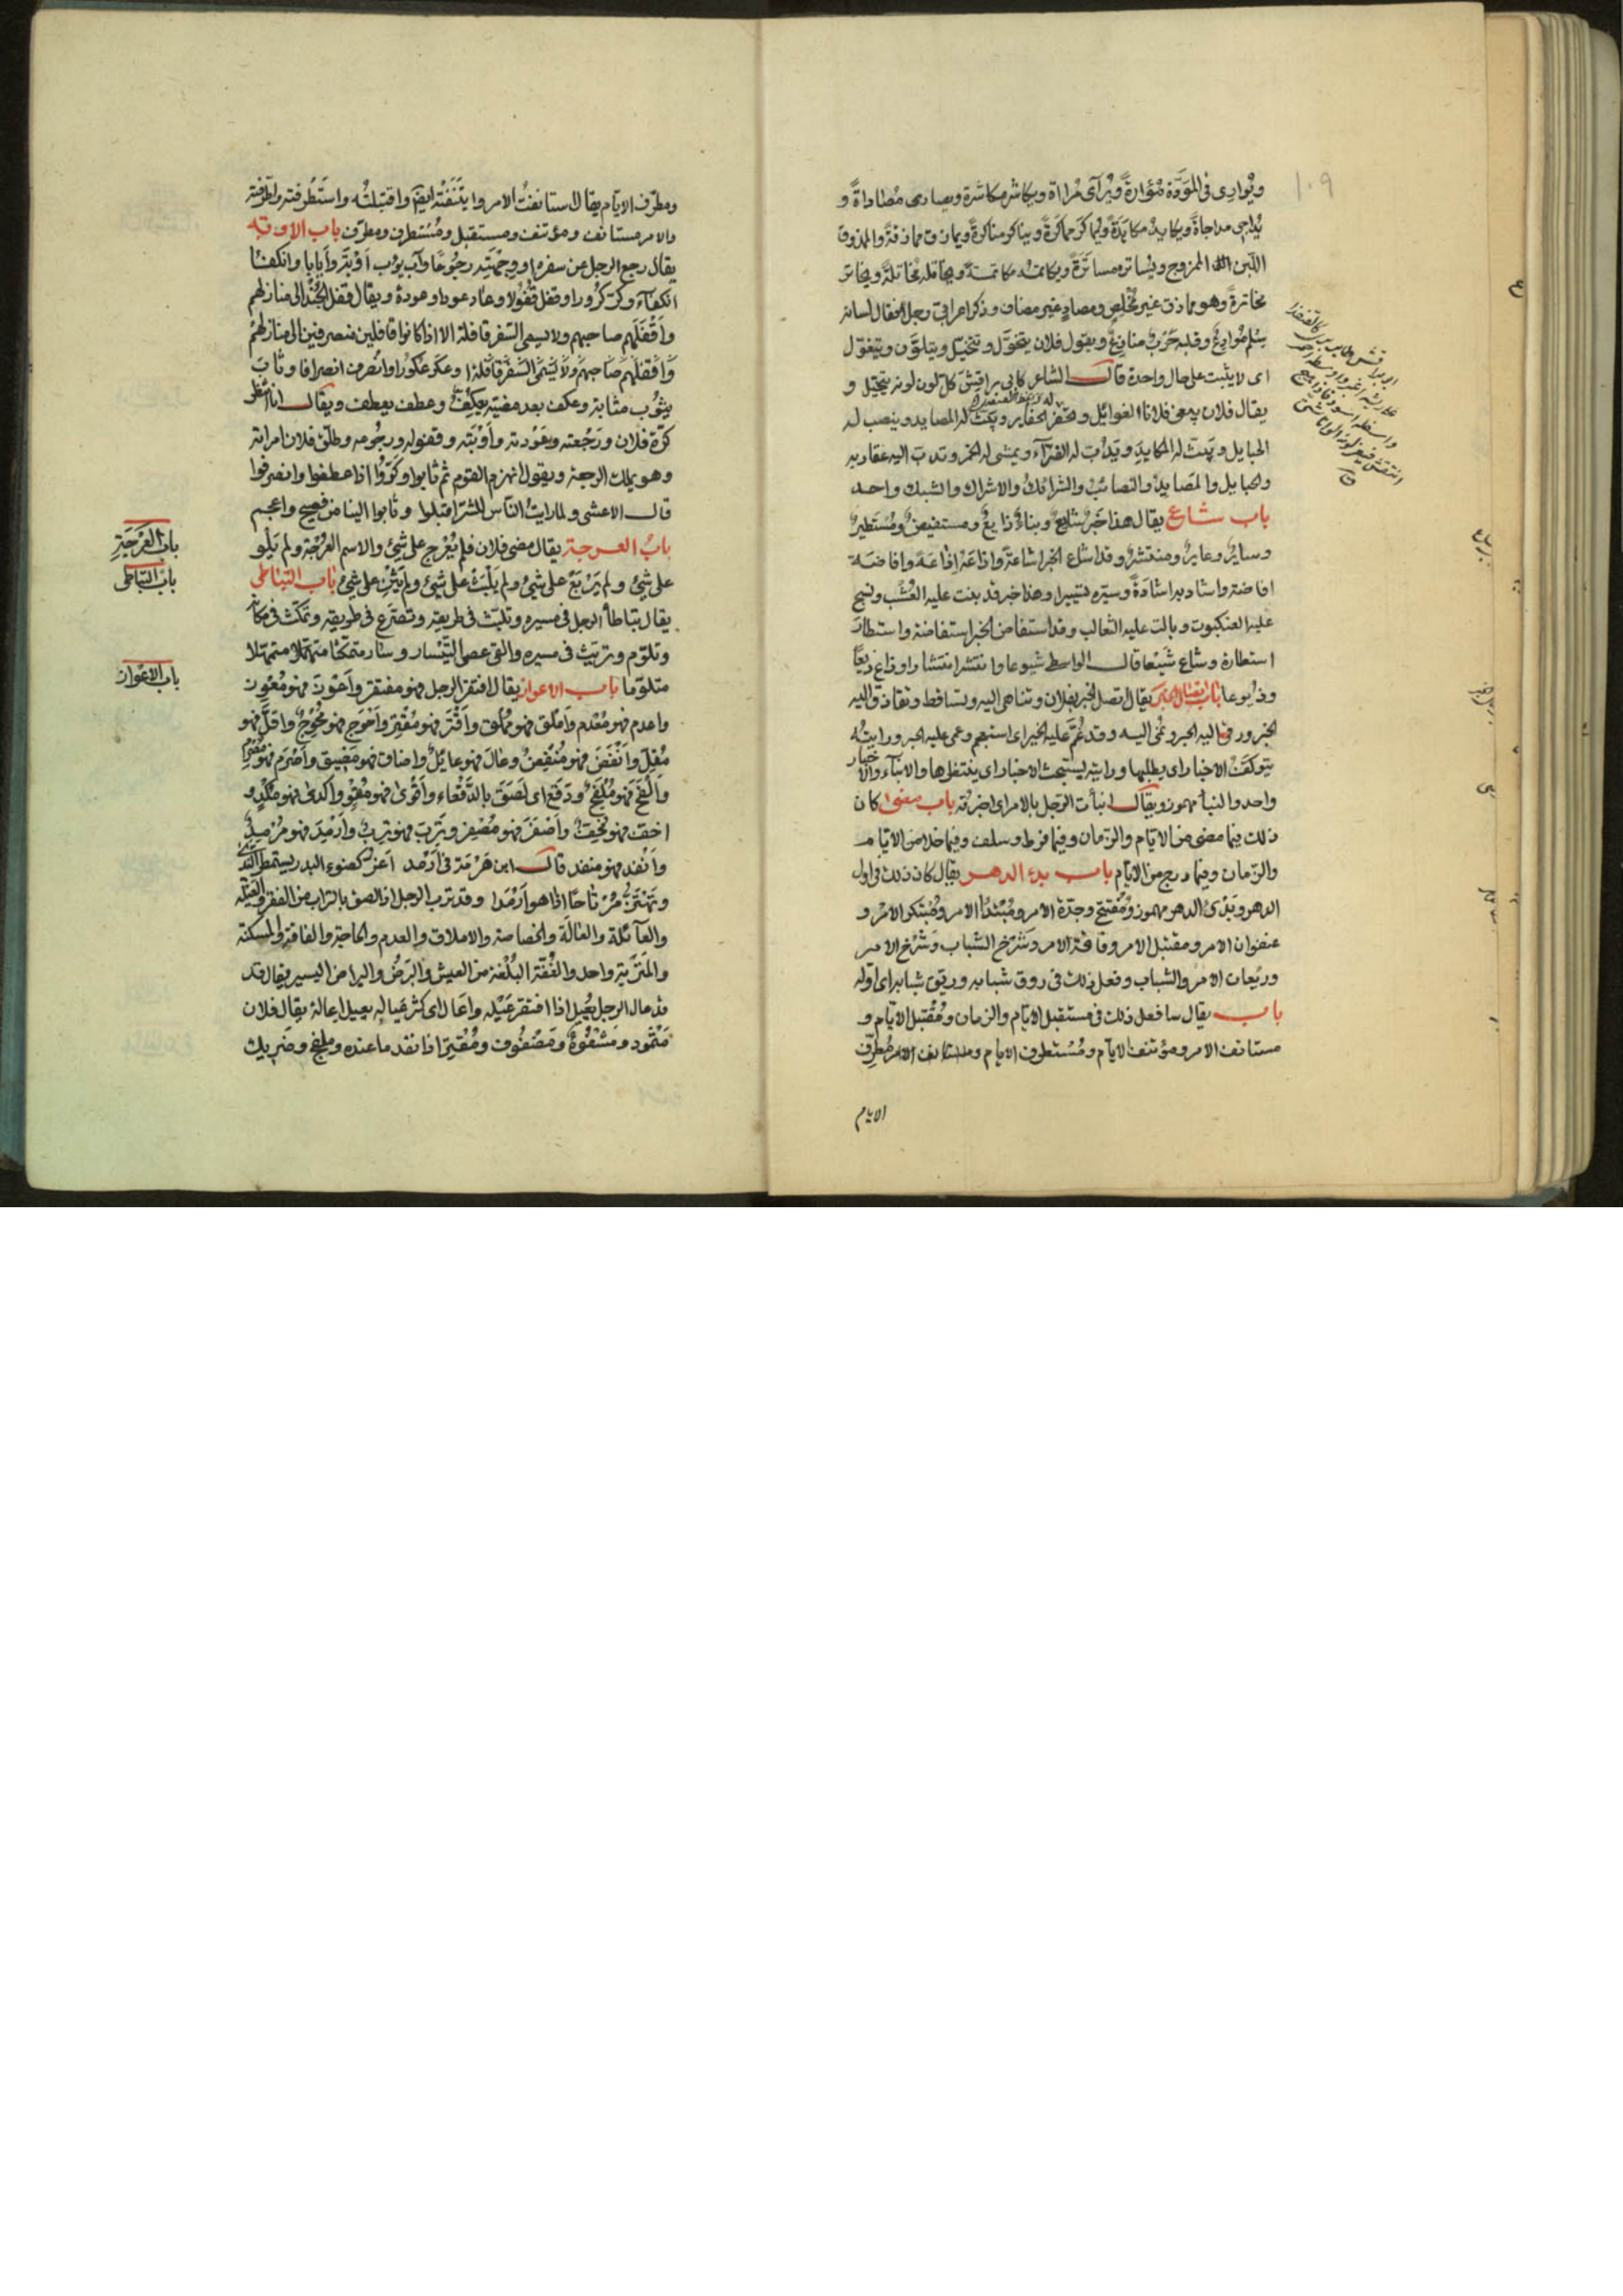 ١٠٩
ويوارى فى المودّة مؤاراةً ويرآى مراآة ويكاشر مكاشرة ويصادى مصاداةً و
يداجى مداجاةً ويكايد مكايدةً ويماكر مماكرةً ويناكر مناكرةً ويماذق مماذقةً والمذوق
اللبن الممزوج ويساتره مساترةً ويكاتمه مكاتمةً ويخاتله مخاتلةً ويخاتر
مخاترةً وهو مماذق غير مخلص ومصادٍ غير مصاف وذكر اعرابى رجلا فقال لسانه
سلم موادع وقلبه حرب منازع ويقول فلان يتخوّل وتخيّل ويتلوّن ويتغوّل
اى لا يثبت على حال واحدة قال الشاعر كابى براقش كل لون لونه يتخيّل و
يقال فلان يبغى فلانا الغوايل ويحفر الحفاير ويبثّ له المصايد وينصب له
الحبايل ويبثّ له المكايد ويدبّ له الضرآء ويمشى له الخمر وتدب اليه عقاربه
والحبايل والمصايد والنصائب والشرائك والاشراك والشبك واحد
باب شاع يقال هذا خبر شايع ونباء ذايع ومستفيض ومستطير
وساير وعاير ومنتشر وقد اشاع الخبر اشاعة واذاعه اذاعةً وافاضه
افاضة واشاد به اشادةً وسيّره تسييرا وهذا خبر قد نبت عليه العشب ونسج
عليه العنكبوت وبالت عليه الثعالب وقد استفاض الخبر استفاضة واستطار
استطارة وشاع شيعا قال الواسطى شيوعا وانتشر انتشارا وذاع ذيعًا
وذيوعا باب اتصال الخبر يقال اتصل الخبر بفلان وتناهى اليه وتساقط وتقاذف اليه
الخبر ورقى اليه الخبر ونمى اليه وقد غمّ عليه الخبر اى استبهم وعمى عليه الخبر ورايته
يتوكف الاخبار اى يطلبها ورايته يستبحث الاخبار اى ينتظرها والانبآء والاخبار
واحد والنبأ مهموز ويقال انبأت الرجل بالامر اى اخبرته باب مضى كان
ذلك فيما مضى من الايام والزمان وفيما فرط وسلف وفيما خلا من الايام
والزمان وفيما درج من الايام باب بدء الدهر يقال كان ذلك فى اول
الدهر وبدىء الدهر مهموز ومفتتح وجدّة الامر ومبتدأ الامر ومبتكر الامر و
عنفوان الامر ومقتبل الامر وفاتحة الامر وشرخ الشباب وشرخ الامر
وريعان الامر والشباب وفعل ذلك فى روق شبابه وريّق شبابه اى اوله
باب يقال سافعل ذلك فى مستقبل الايام والزمان ومقتبل الايام و
مستانف الامر ومؤتنف الايام ومستطرف الايام ومستانف الامر ومطرف
الايام
ومطرّف الايام يقال استانفت الامر وايتنفته ايضًا واقتبلته واستطرفته واطّرفته
والامر مستانف ومؤتنف ومستقبل ومستطرف ومطرّف باب الاوبة
يقال رجع الرجل عن سفره او وجهته رجوعًا وآب يؤب اوبةً وايابا وانكفا
انكفآء وكرّ كرورا وقفل قفولا وعاد عودا وعودة ويقال قفل الجند الى منازلهم
واقفلهم صاحبهم ولا يسمى السفر قافلة الا اذا كانوا قافلين منصرفين الى منازلهم
واقفلهم صاحبهم ولا يسمى السفر قافلة وعكر عكورا وانصرف انصرافا وثاب
يثوب مثابة وعكف بعد مضيّه يعكف وعطف يعطف ويقال انا انتظر
كرّة فلان ورجعته وعودته واوبته وقفوله ورجوعه وطلق فلان امراته
وهو يملك الرجعة ويقول انهزم القوم ثم ثابوا وكرّوا اذا عطفوا وانصرفوا
قال الاعشى ولما رايت الناس للشرّ اقبلوا وثابوا الينا من فصيح واعجم
باب العرجة يقال مضى فلان فلم يعرّج على شئ والاسم العرجة ولم يلو
على شئ ولم يربع على شئ ولم يلبث على شئ ولم يثن على شئ باب التباطى
يقال تباطأ الرجل فى مسيره وتلبّث فى طريقه وتضرّع فى طريقه وتمكّث فى مكانه
وتلوّم وتريّث فى مسيره والقى عصا التسيار وسار متمكثا متمهلا متمهّلا
متلوّما باب الاعواز يقال افتقر الرجل فهو مفتقر واعوز فهو معوز
واعدم فهو معدم واملق فهو مملق واقتر فهو مقتر واحوج فهو محوج واقلّ فهو
مقلّ وانفض فهو منفض وعال فهو عايل واضاق فهو مضيق واصرم فهو مصرم
والفج فهو ملفج ودقع اى لصق بالدقعاء واقوى فهو مقو واكدى فهو مكدٍ و
اخفّ فهو مخفّ واصفر فهو مصفر وترب فهو ترب وارمد فهو مرمد
وانفد فهو منفد قال ابن هرمة فى ارمد اغرّ كضوء البدر يستمطر الندى
ويهتزّ مرتاحًا اذا هو ارمدا وقد ترب الرجل اذا لصق بالتراب من الفقر والعيلة
والعآئلة والعالة والخصاصة والاملاق والعدم والحاجة والفاقة والمسكنة
والمتربة واحد والغفّة البلغة من العيش والبرض واليسير يقال قد
عال الرجل يعيل اذا افتقر عيلة واعال اى كثر عياله يعيل اعالة يقال فلان
مثمود ومشفوه ومضفوف ومقتر اذا نفد ما عنده وملفج وضريك
باب العرجة
باب التباطى
باب الاعواز